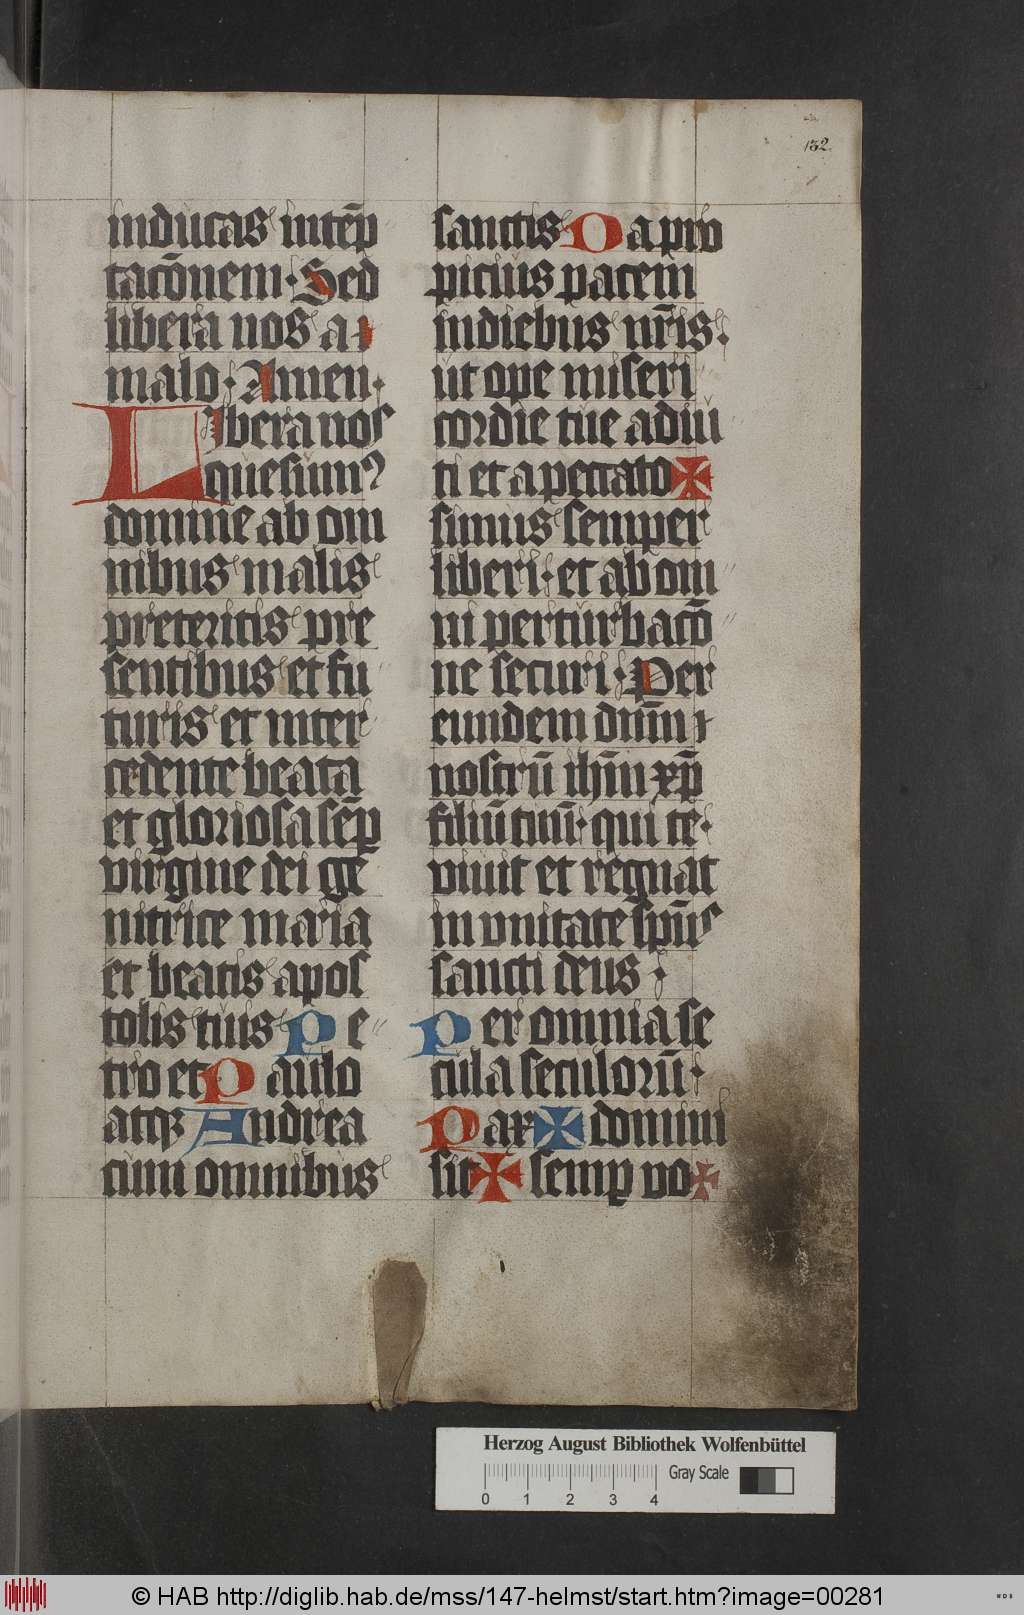 132
inducas in tēp
tacōnem · Sed
libera nos a
malo · Amen ·
Libera nos
quesumꝰ
domine ab om
nibus malis
preteritis pre
sentibus et fu
turis et inter
cedente beata
et gloriosa sēp
virgine dei ge
nitrice maria
et beatis apos
tolis tuis Pe
tro et Paulo
atqꝫ Andrea
cum omnibus
sanctis Da pro
picius pacem
in diebus nr̄is ·
ut ope miseri
cordie tue adiu
ti et a peccato ✠
simus semper
liberi · et ab om
ni perturbacō
ne securi · Per
eundem dnm̄
nostrū ihm̄ xp̄
filiū tuū · qui te ·
viuit et regnat
in vnitate spūs
sancti deus ·
Per omnia se
cula seculorū ·
Pax ✠ domini
sit ✠ semꝑ vo ✠
Herzog August Bibliothek Wolfenbüttel
Gray Scale
0 1 2 3 4
© HAB http://diglib.hab.de/mss/147-helmst/start.htm?image=00281